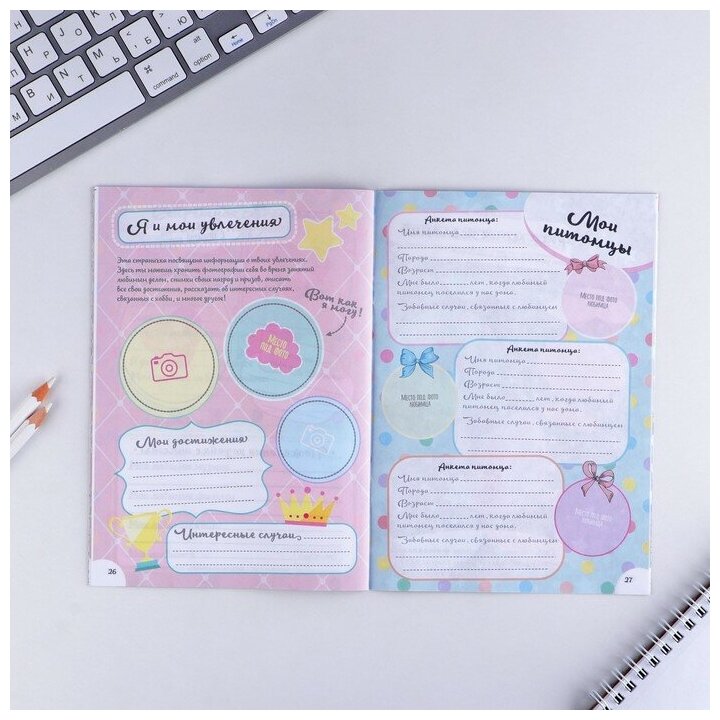 alt
option
⌘
command
Home
PgDn
Я и мои увлечения
Эта страничка посвящена информации о твоих увлечениях.
Здесь ты можешь хранить фотографии себя во время занятий
любимым делом, снимки своих наград и призов, описать
все свои достижения, рассказать об интересных случаях,
связанных с хобби, и многое другое!
Вот как
я могу!
Место
под фото
Мои достижения
Интересные случаи
26
Мои
питомцы
Анкета питомца:
Имя питомца
Порода
Возраст
Мне было лет, когда любимый
питомец поселился у нас дома.
Забавные случаи, связанные с любимцем
Место под фото
любимца
Анкета питомца:
Имя питомца
Порода
Возраст
Мне было лет, когда любимый
питомец поселился у нас дома.
Забавные случаи, связанные с любимцем
Место под фото
любимца
Анкета питомца:
Имя питомца
Порода
Возраст
Мне было лет, когда любимый
питомец поселился у нас дома.
Забавные случаи, связанные с любимцем
Место под фото
любимца
27